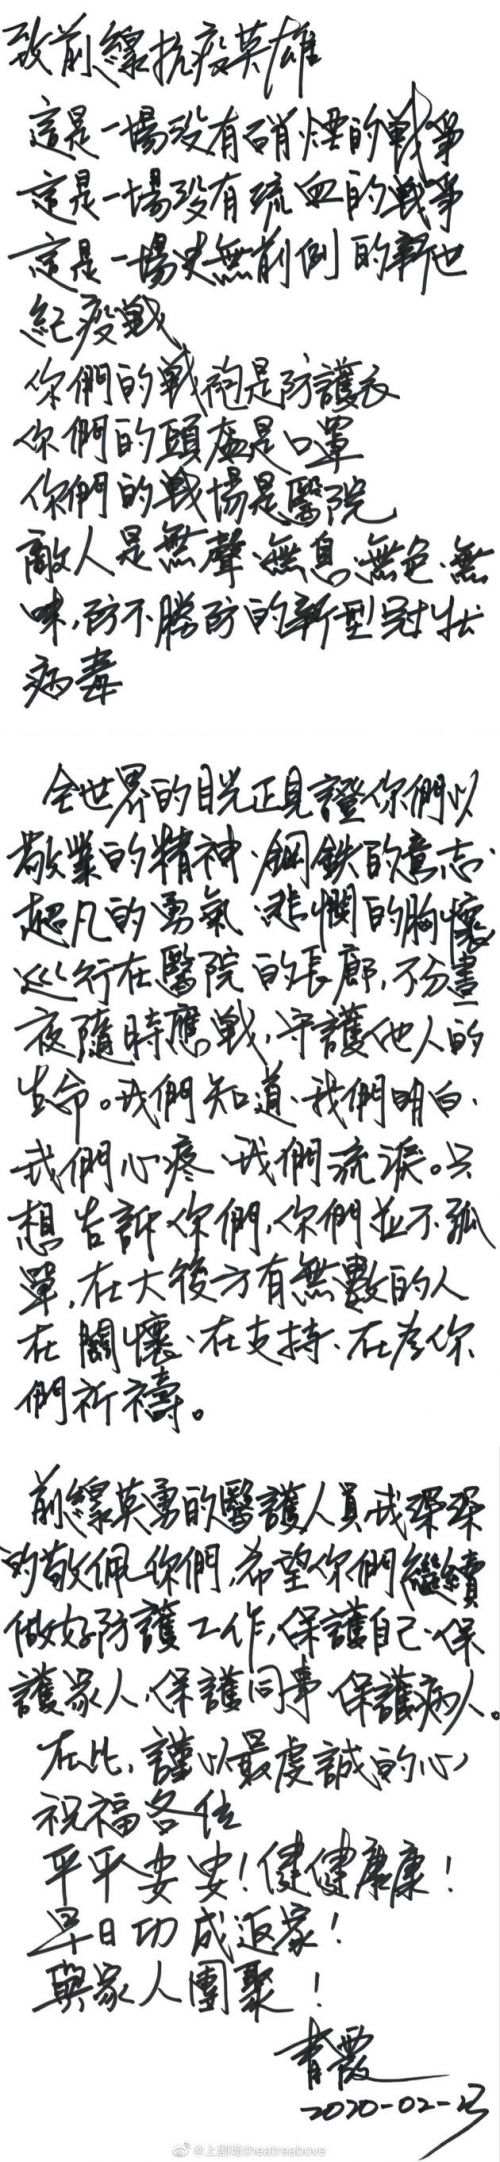 致前線抗疫英雄
這是一場没有硝煙的戰爭
這是一場没有流血的戰爭
這是一場史無前例的新世
紀疫戰
你們的戰袍是防護衣
你們的頭盔是口罩
你們的戰場是醫院
敵人是無聲、無息、無色、無
味,防不勝防的新型冠狀
病毒
全世界的目光正見證你們以
敬業的精神、鋼鉄的意志、
超凡的勇氣、悲憫的胸懷
巡行在醫院的長廊,不分晝
夜隨時應戰,守護他人的
生命。我們知道、我們明白、
我們心疼、我們流淚。只
想告訴你們,你們並不孤
單,在大後方有無數的人
在關懷、在支持、在為你
們祈禱。
前線英勇的醫護人員,我深深
的敬佩你們,希望你們繼續
做好防護工作,保護自己、保
護家人、保護同事、保護病人。
在此,謹以最虔誠的心
祝福各位
平平安安!健健康康!
早日功成返家!
與家人團聚!
青霞
2020-02-13
@上剧场theatreabove